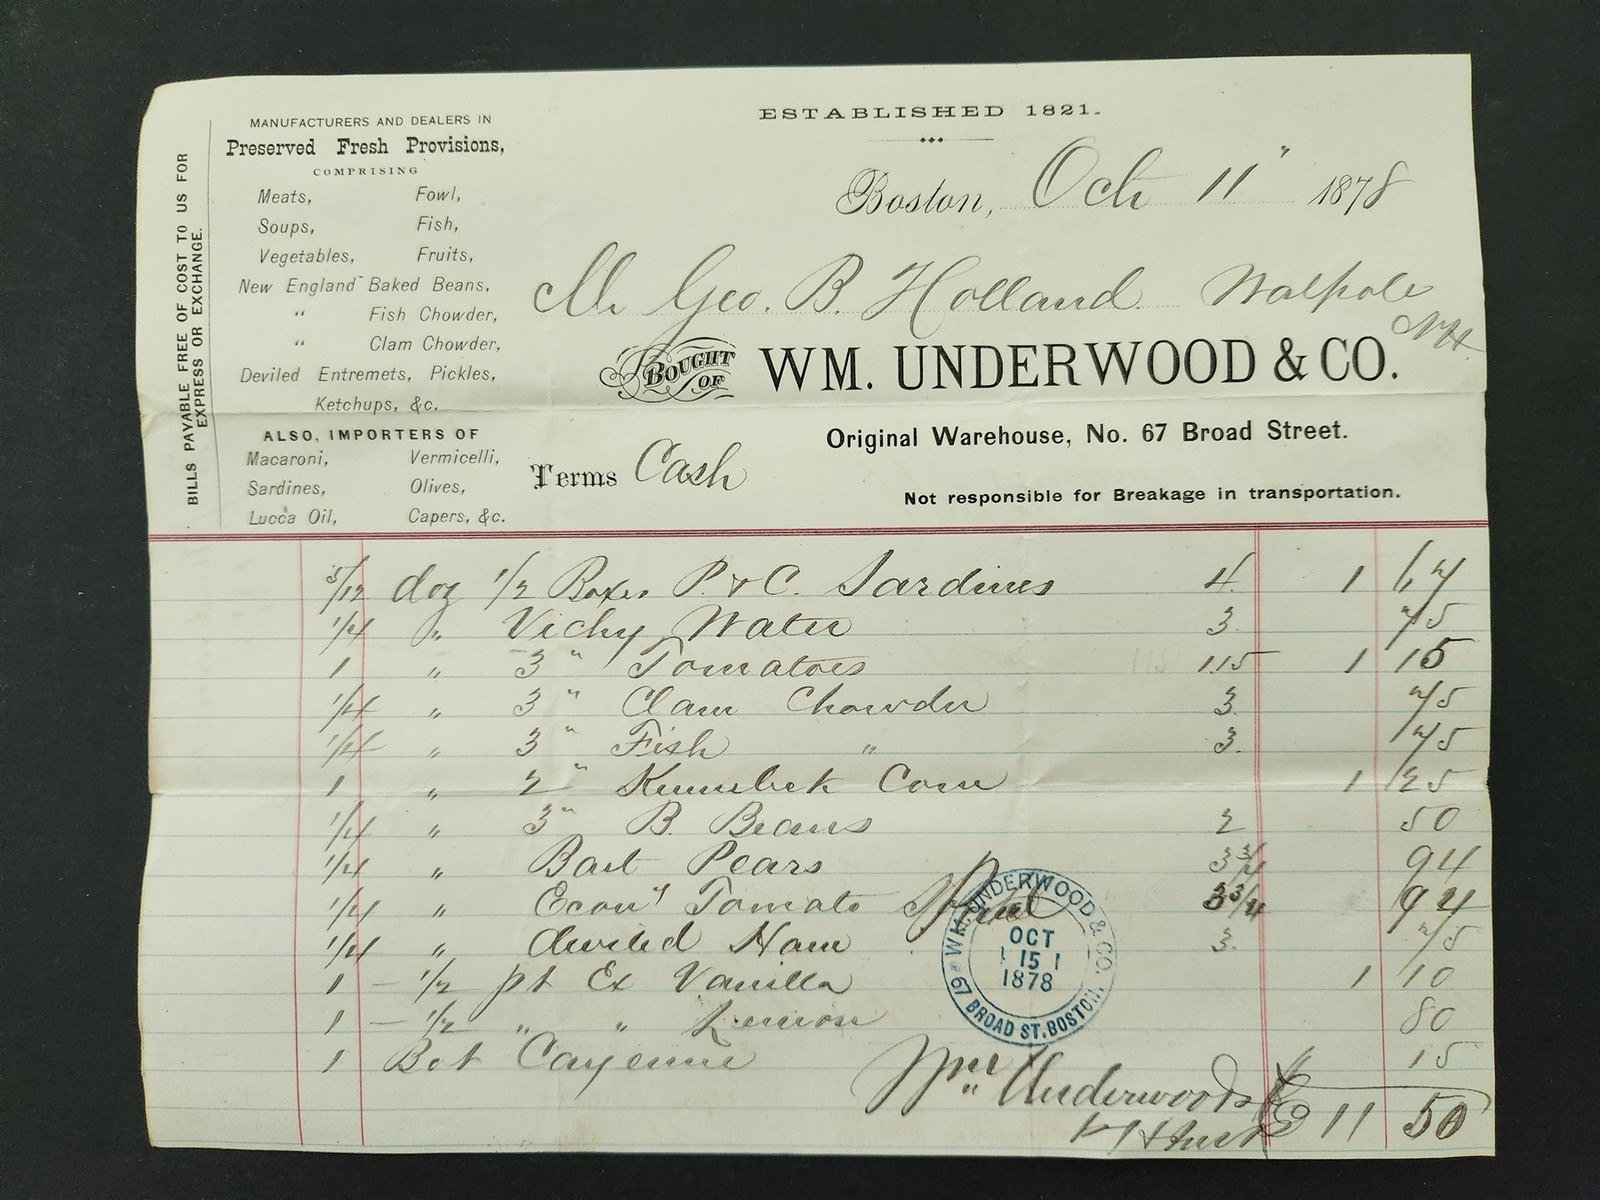 BILLS PAYABLE FREE OF COST TO US FOR
EXPRESS OR EXCHANGE.
MANUFACTURERS AND DEALERS IN
Preserved Fresh Provisions,
COMPRISING
Meats, Fowl,
Soups, Fish,
Vegetables, Fruits,
New England Baked Beans,
" Fish Chowder,
" Clam Chowder,
Deviled Entremets, Pickles,
Ketchups, &c.
ALSO, IMPORTERS OF
Macaroni, Vermicelli,
Sardines, Olives,
Lucca Oil, Capers, &c.
ESTABLISHED 1821.
Boston, Oct 11" 1878
Mr Geo. B. Holland Walpole
N.H.
BOUGHT OF WM. UNDERWOOD & CO.
Original Warehouse, No. 67 Broad Street.
Terms Cash
Not responsible for Breakage in transportation.
5/12 doz 1/2 Boxes P. & C. Sardines 4. 1 67
1/4 " Vichy Water 3. 75
1 " 3 " Tomatoes 1.15 1 15
1/4 " 3 " Clam Chowder 3. 75
1/4 " 3 " Fish " 3. 75
1 " 2 " Kennebek Corn 1 25
1/4 " 3 " B. Beans 2 50
1/4 " Bart Pears 3 3/4 94
1/4 " Econ'y Tomato 3 3/4 94
1/4 " deviled Ham 3. 75
1 - 1/2 pt Ex Vanilla 1 10
1 - 1/2 " " Lemon 80
1 Bot Cayenne 15
11 50
Paid
WM. UNDERWOOD & CO.
OCT
15
1878
67 BROAD ST. BOSTON.
Wm Underwood & Co